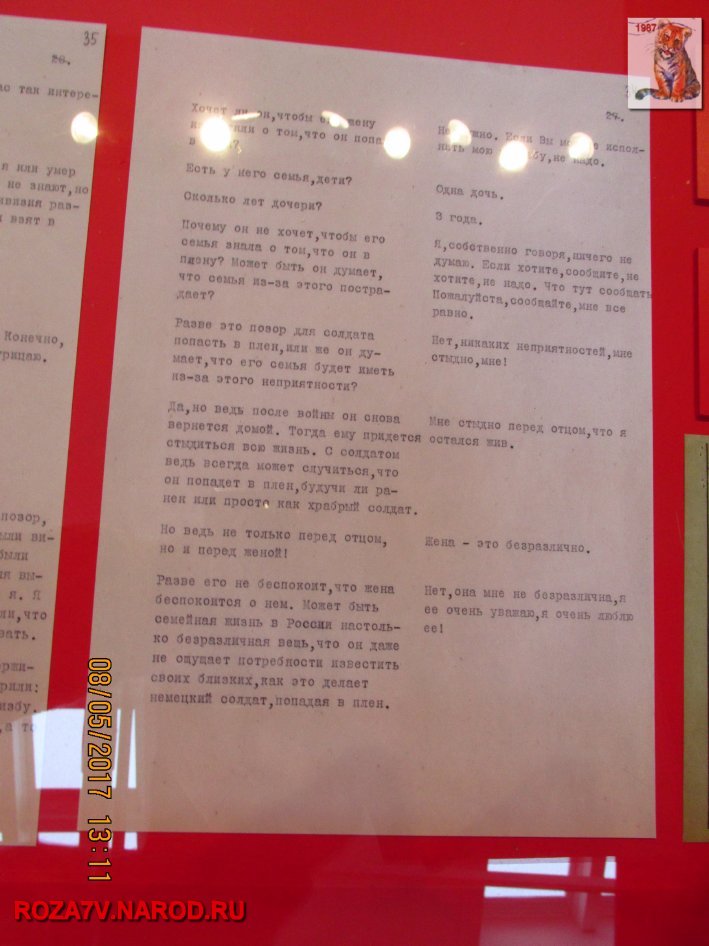 35
26.
ас так интере-
я или умер
не знают,но
ивизия раз-
взят в
Конечно,
трицаю.
позор,
были ви-
были
ия вы-
я. Я
ли,что
вать.
ержи-
орили:
избу.
,а то
1987
27.
Хочет ли он,чтобы его жену
о том,что он попа
в
Есть у него семья,дети?
Сколько лет дочери?
Почему он не хочет,чтобы его
семья знала о том,что он в
плену? Может быть он думает,
что семья из-за этого постра-
дает?
Разве это позор для солдата
попасть в плен,или же он ду-
мает,что его семья будет иметь
из-за этого неприятности?
Да,но ведь после войны он снова
вернется домой. Тогда ему придется
стыдиться всю жизнь. С солдатом
ведь всегда может случиться,что
он попадет в плен,будучи ли ра-
нен или просто как храбрый солдат.
Но ведь не только перед отцом,
но и перед женой!
Разве его не беспокоит,что жена
беспокоится о нем. Может быть
семейная жизнь в России настоль-
ко безразличная вещь,что он даже
не ощущает потребности известить
своих близких,как это делает
немецкий солдат,попадая в плен.
Не нужно. Если Вы испол-
нить мою не надо.
Одна дочь.
3 года.
Я,собственно говоря,ничего не
думаю. Если хотите,сообщите,не
хотите,не надо. Что тут сообщать
Пожалуйста,сообщайте,мне все
равно.
Нет,никаких неприятностей,мне
стыдно,мне!
Мне стыдно перед отцом,что я
остался жив.
Жена - это безразлично.
Нет,она мне не безразлична,я
ее очень уважаю,я очень люблю
ее!
08/05/2017 13:11
ROZA7V.NAROD.RU